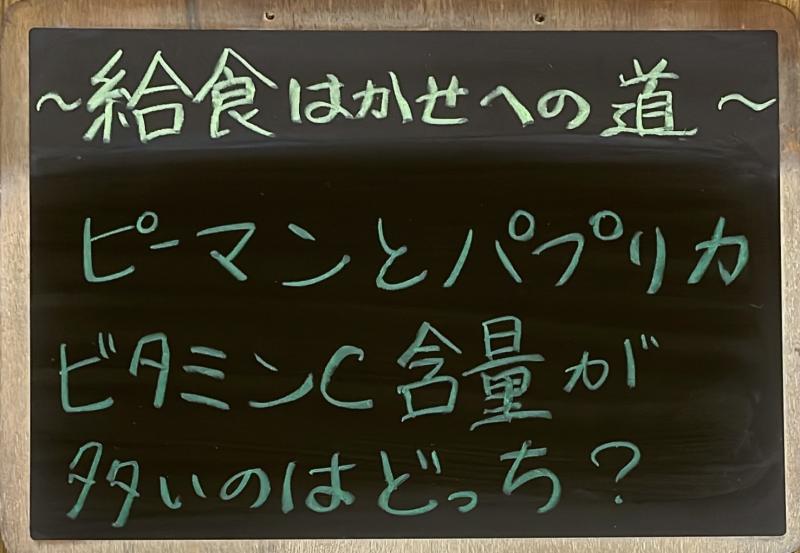 ～給食はかせへの道～
ピーマンとパプリカ
ビタミンC含量が
多いのはどっち？